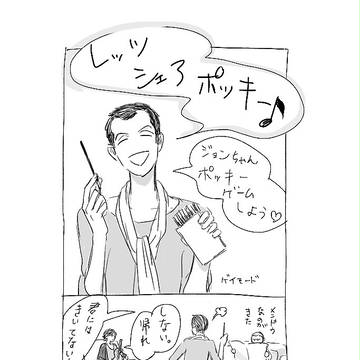 レッツ
シェア
ポッキー♪
ジョンちゃん
ポッキー
ゲーム
しよう♡
ゲイモード
メンドウ
なのが
きた
しない。
帰れ
君には
きいてない